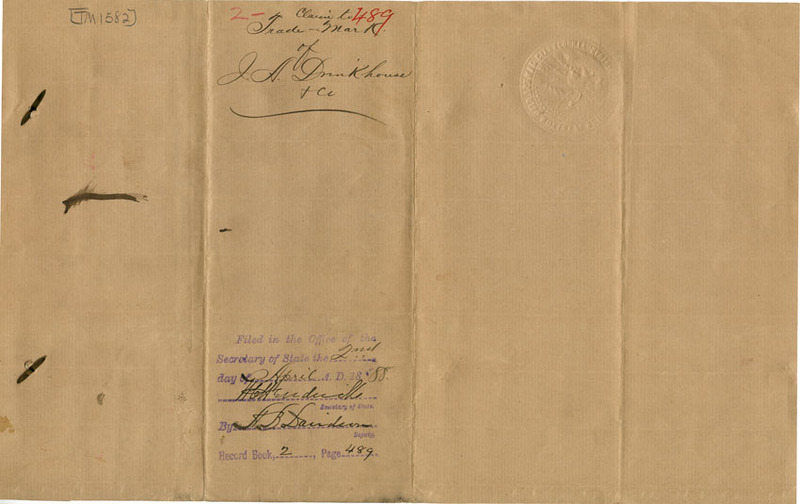 [TM1582]
2- Claim to 489
Trade-Mark
of
J. A. Drinkhouse
& Co
Filed in the Office of the
Secretary of State the 2nd
day of April A. D. 1888.
Secretary of State.
By A B Davidson
Deputy.
Record Book, 2, Page 489